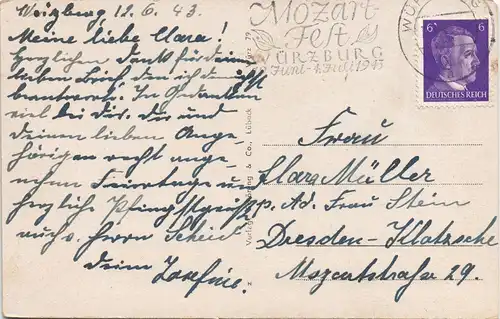 Würzburg, 12. 6. 43.
Meine liebe Clara!
Herzlichen Dank für deinen
lieben Brief, den ich demnächst
beantworte. In Gedanken
viel bei Dir. Dir und
deinen lieben Ange-
hörigen recht ange-
nehme Feiertage u.
herzliche Pfingstgrüsse
auch v. Herrn
deine Josefine.
Mozart-
Fest
WÜRZBURG
Juni-4. Juli 1943
WÜ
6
6
DEUTSCHES REICH
& Co., Lübeck
Frau
Clara Müller
p. Ad. Frau Stein
Dresden-Klotzsche
Mozartstraße 29.